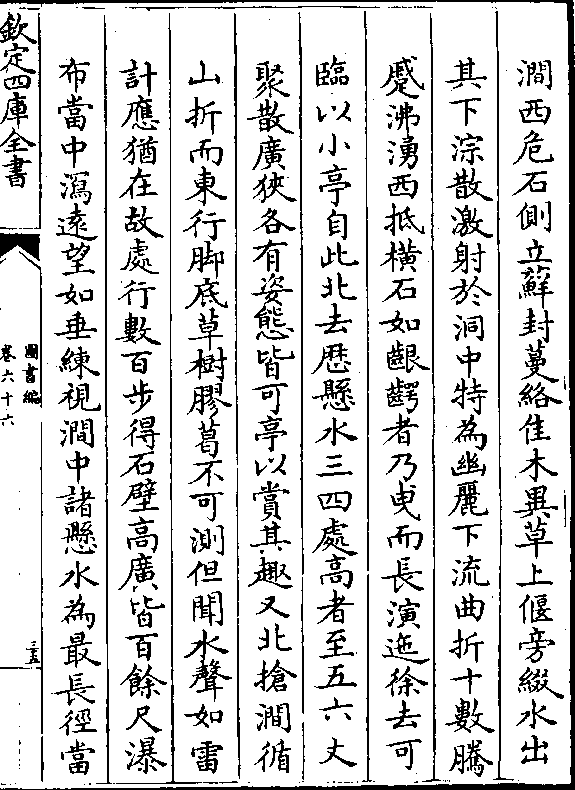 澗西危石側立蘚封蔓絡佳木異草上偃旁綴水出
其下淙散激射於洞中特為幽麗下流曲折十數騰
蹙沸湧西抵橫石如齦齶者乃曳而長演迤徐去可
臨以小亭自此北去歴懸水三四處高者至五六丈
聚散廣狹各有姿態皆可亭以賞其趣又北搶澗循
山折而東行脚底草樹膠葛不可測但聞水聲如雷
計應猶在故處行數百步得石壁高廣皆百餘尺瀑
布當中瀉遠望如垂練視澗中諸懸水為最長徑當
欽定四庫全書
圖書編
卷六十六
三五